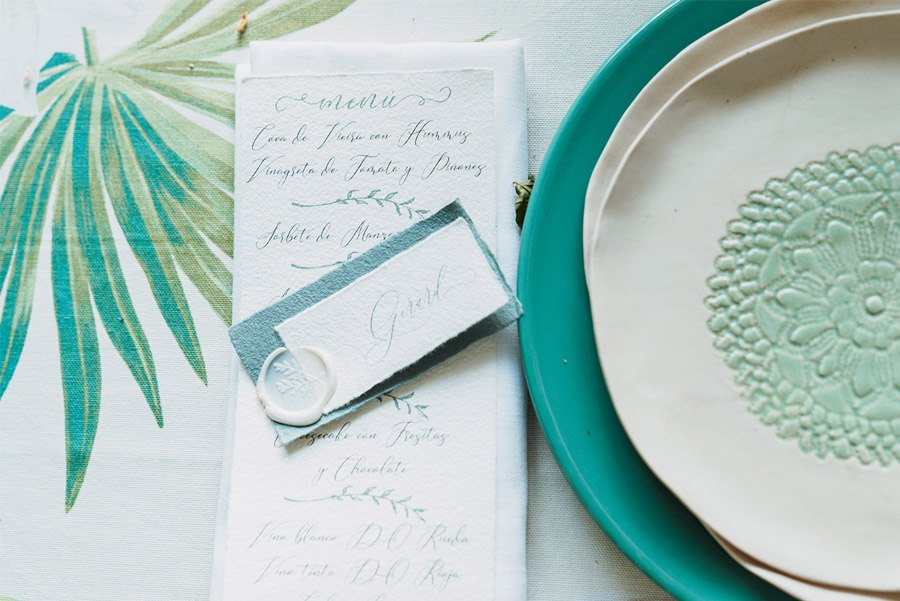 menú
Coca de Vieira con Hummus
Vinagreta de Tomate y Piñones
Sorbete de
Gerard
Cheesecake con Fresitas
y Chocolate
Vino blanco D.O Rueda
Vino tinto D.O Rioja